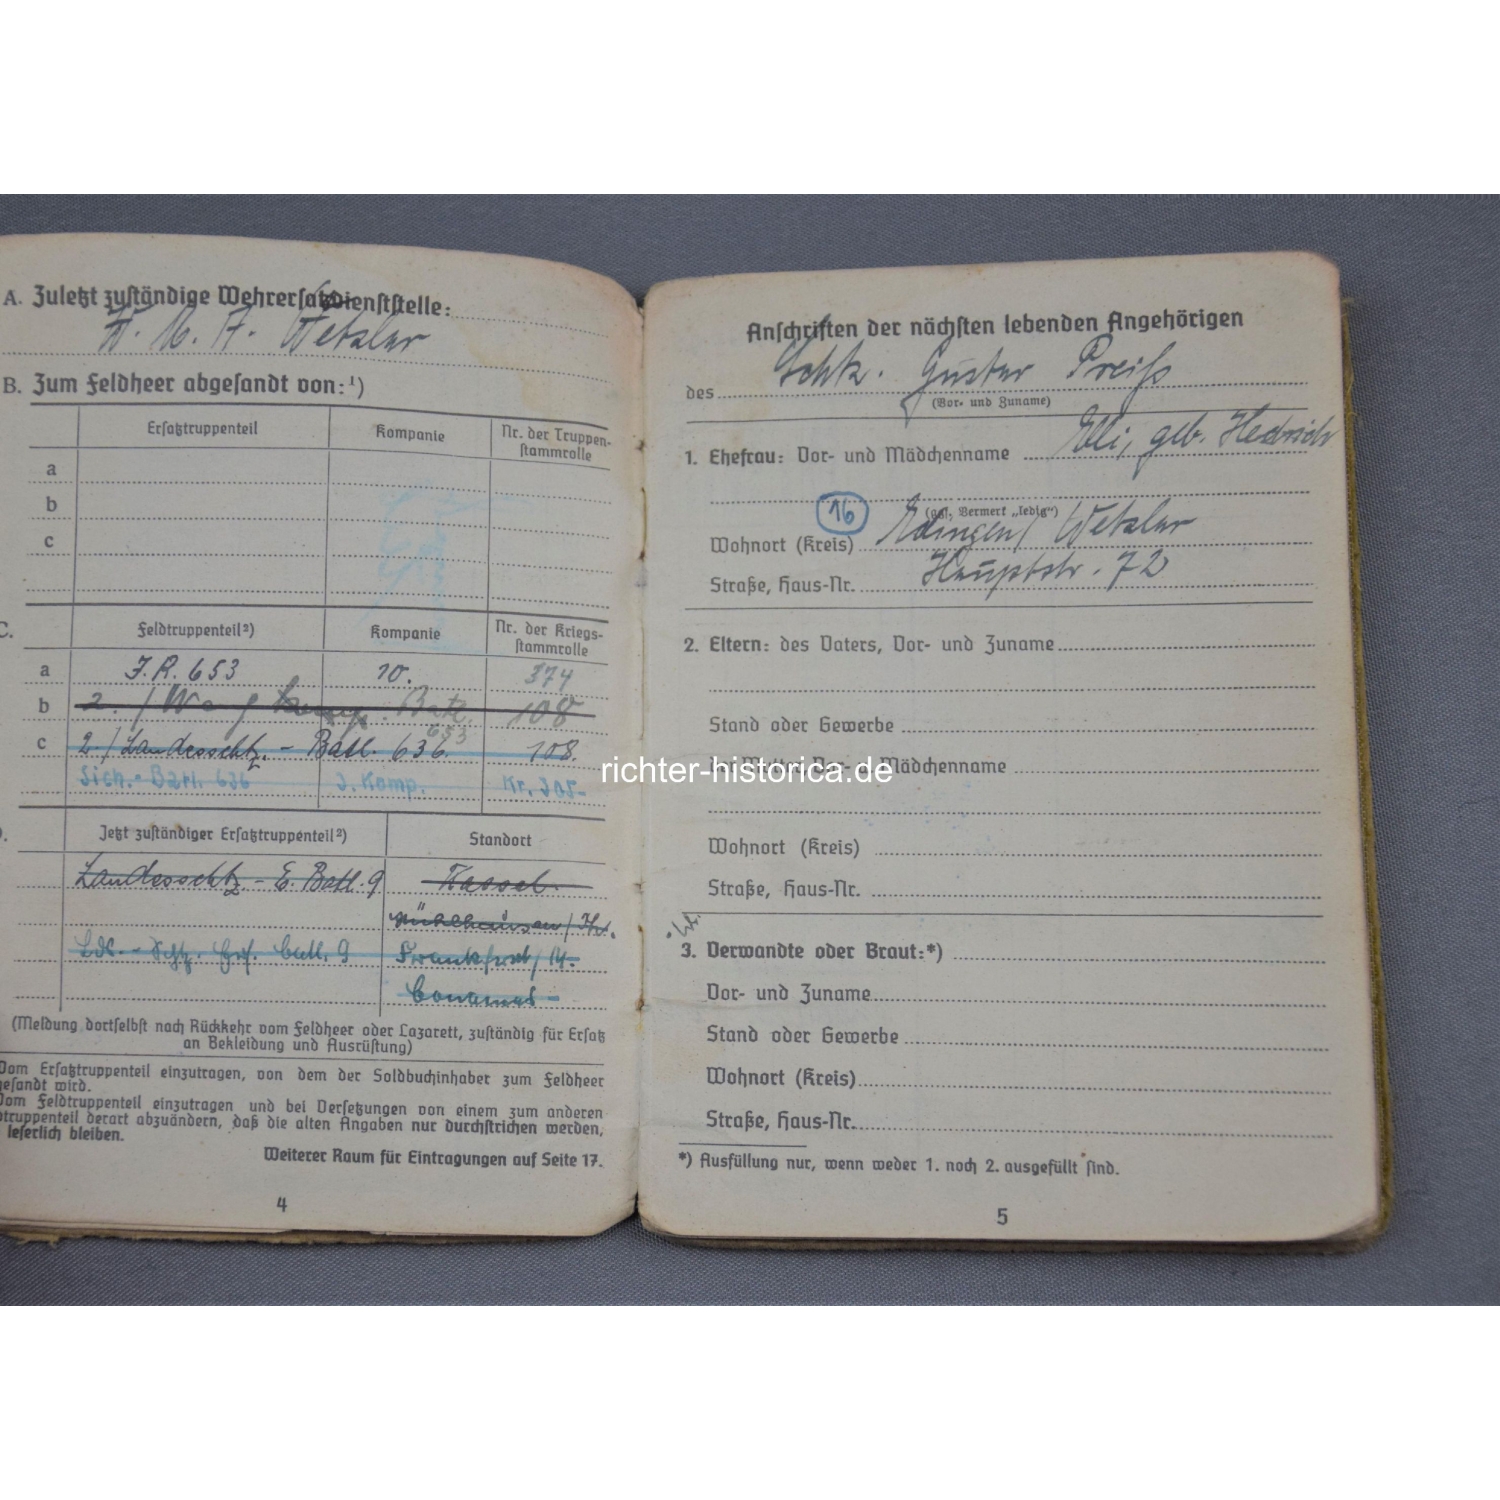 A. Zuletzt zuständige Wehrersatzdienststelle:
W. M. A. Wetzlar
B. Zum Feldheer abgesandt von:¹)
Ersatztruppenteil
Kompanie
Nr. der Truppen-
stammrolle
a
b
c
C.
Feldtruppenteil²)
Kompanie
Nr. der Kriegs-
stammrolle
a J.R. 653 10. 374
b 2. / Batl. 653 108
c 2./Landesschtz. - Batl. 636 108.
Sich.- Batl. 636 3. Komp. Nr. 305
Jetzt zuständiger Ersatztruppenteil²)
Standort
Landesschtz - E. Batl. 9 Kassel
Mühlhausen / Th.
Lds.-Schtz. Batl. 9 Frankfurt / M.
Bonames
(Meldung dortselbst nach Rückkehr vom Feldheer oder Lazarett, zuständig für Ersatz
an Bekleidung und Ausrüstung)
Vom Ersatztruppenteil einzutragen, von dem der Soldbuchinhaber zum Feldheer
gesandt wird.
Vom Feldtruppenteil einzutragen und bei Versetzungen von einem zum anderen
dtruppenteil derart abzuändern, daß die alten Angaben nur durchstrichen werden,
leserlich bleiben.
Weiterer Raum für Eintragungen auf Seite 17.
4
Anschriften der nächsten lebenden Angehörigen
des Schtz. Gustav Preiß
(Vor- und Zuname)
1. Ehefrau: Vor- und Mädchenname Elli, geb. Hedrich
(ggf. Vermerk „ledig“)
16
Wohnort (Kreis) Edingen/ Wetzlar
Straße, Haus-Nr. Hauptstr. 72
2. Eltern: des Vaters, Vor- und Zuname
Stand oder Gewerbe
der Mutter, Vor- u. Mädchenname
richter-historica.de
Wohnort (Kreis)
Straße, Haus-Nr.
3. Verwandte oder Braut:*)
Vor- und Zuname
Stand oder Gewerbe
Wohnort (Kreis)
Straße, Haus-Nr.
*) Ausfüllung nur, wenn weder 1. noch 2. ausgefüllt sind.
5